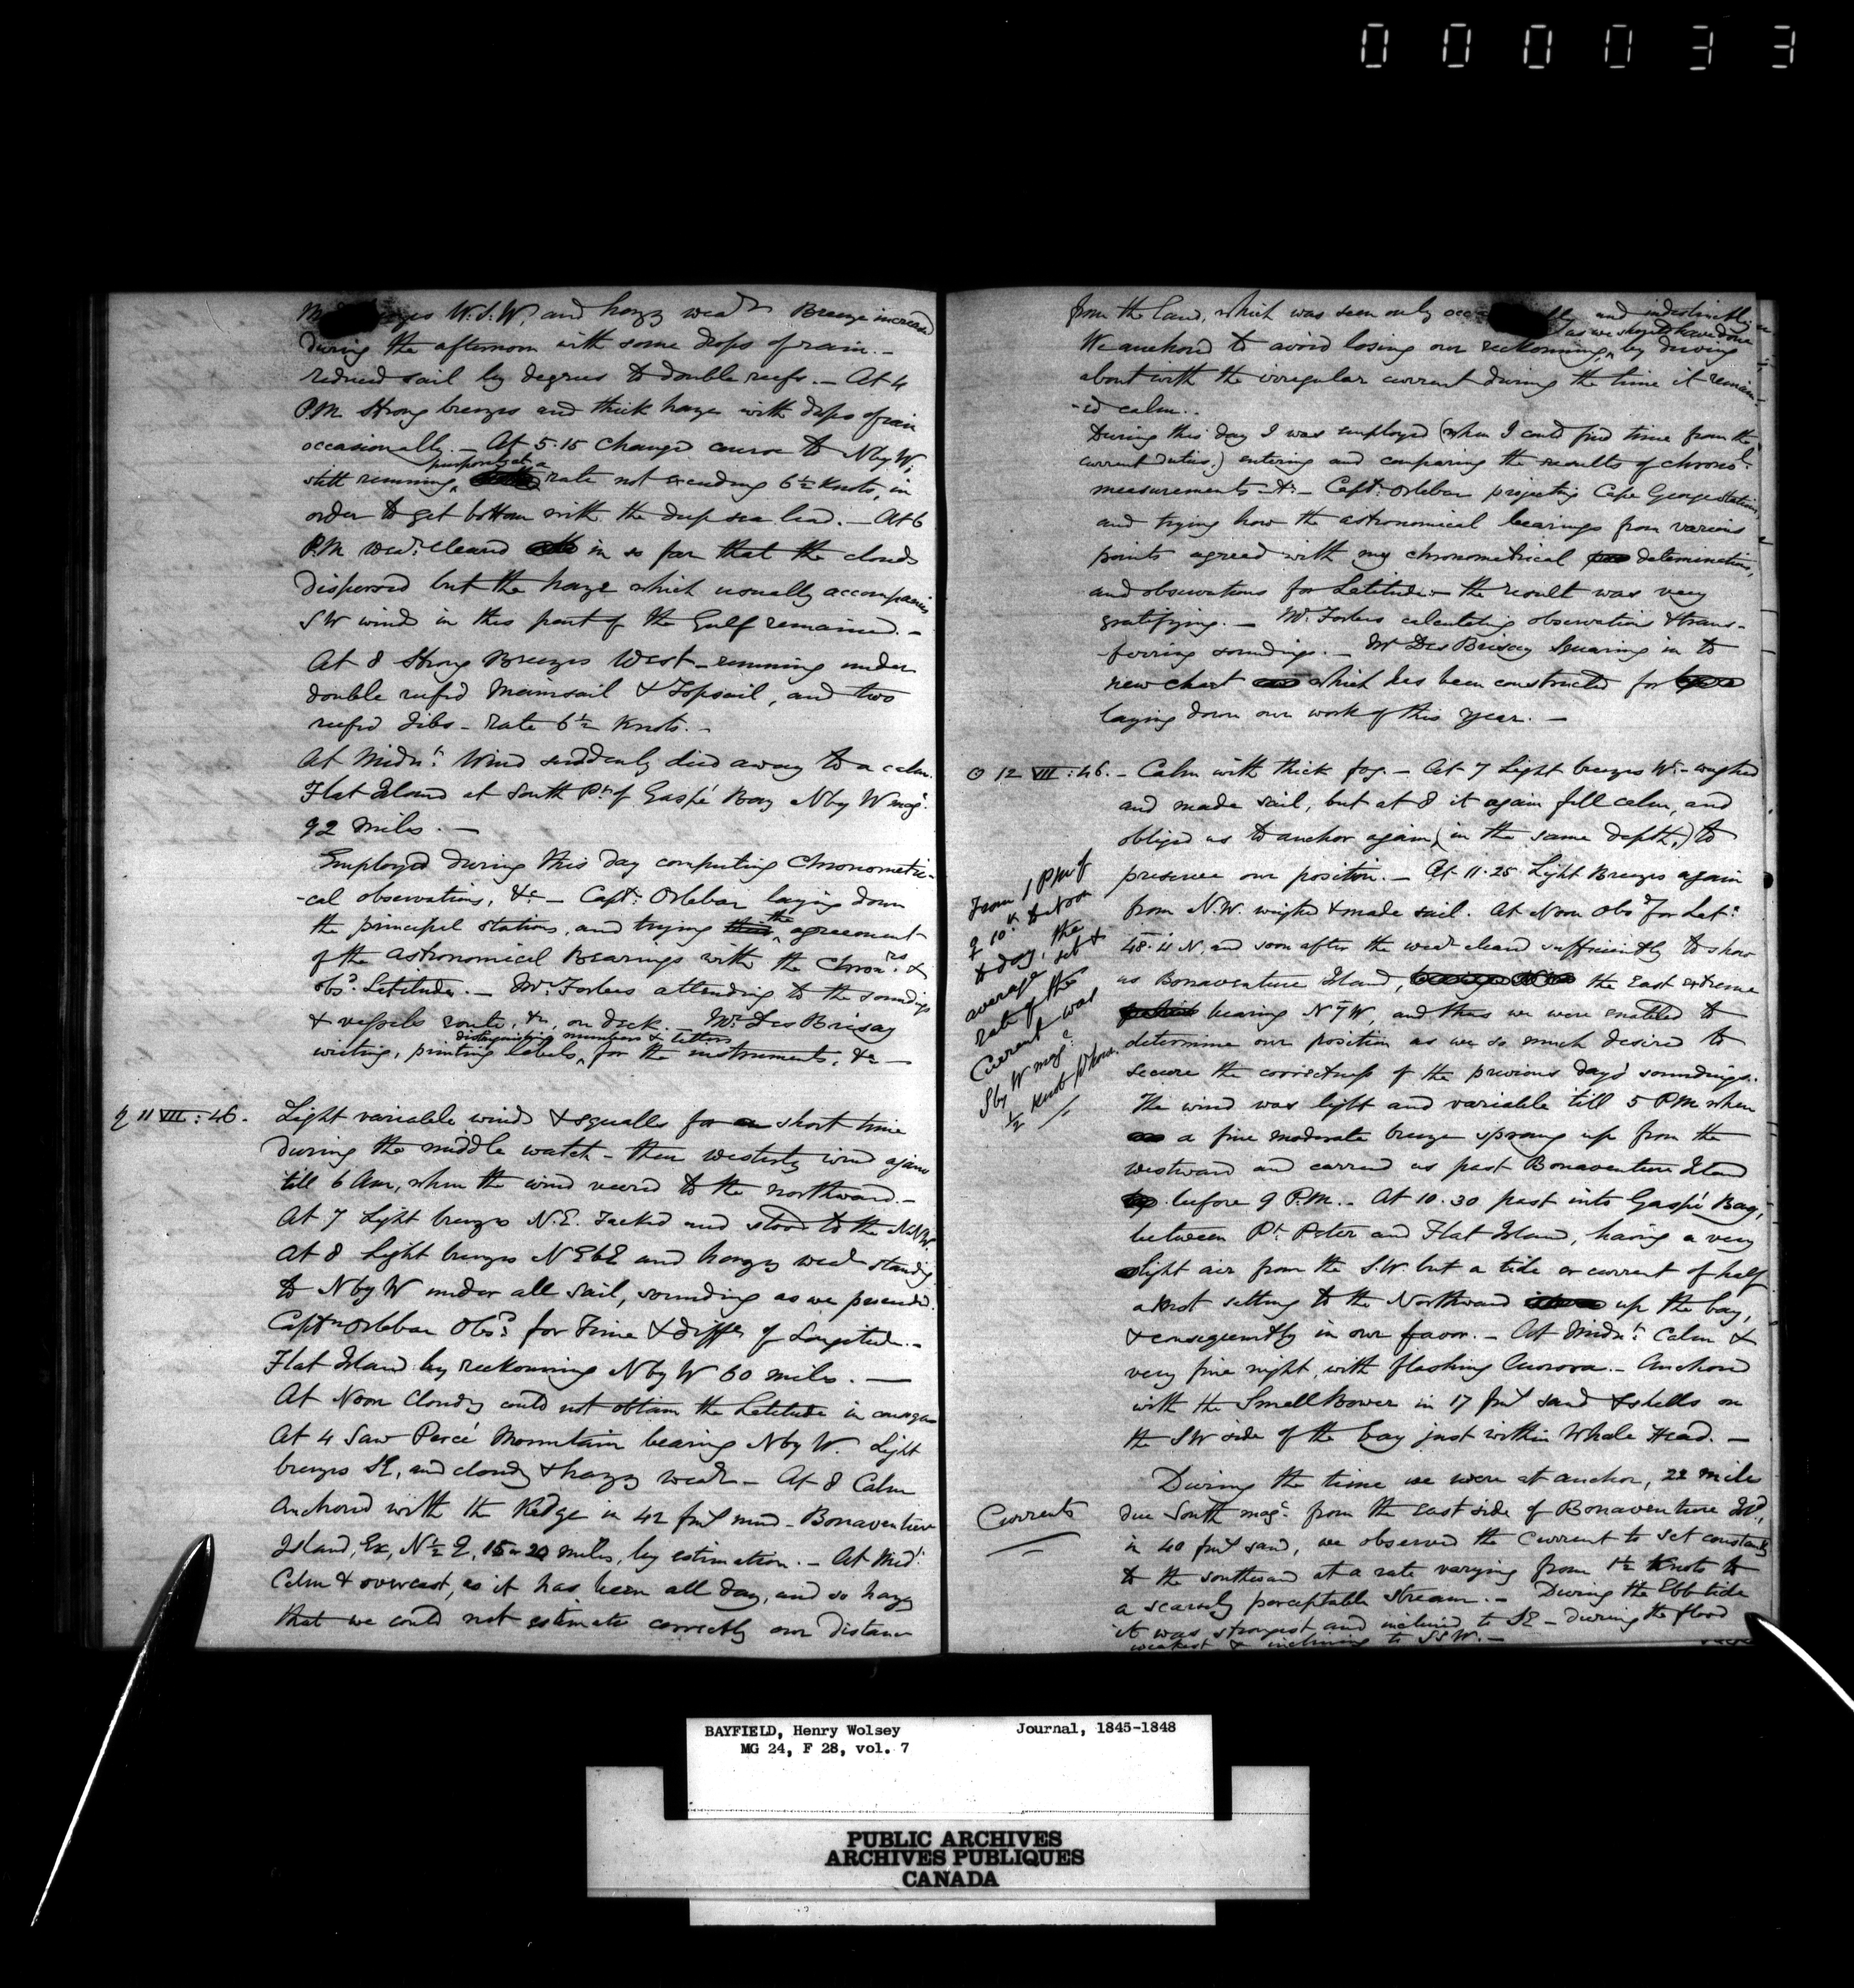 000033
W.S.W. and hazy weadr Breeze increased
during the afternoon with some drops of rain. -
reduced sail by degrees to double reefs. - At 4
P.M Strong breezes and thick haze with drops of rain
occasionally. - At 5.15 changed course to N by W,
purposely at a
still running, rate not exceeding 6½ Knots, in
order to get bottom with the deep sea lead. - At 6
P.M wear. cleared in so far that the clouds
dispersed but the haze which usually accompanies
SW winds in this part of the Gulf remained. -
At 8 Strong Breezes West - running under
double reefed Mainsail & Topsail, and two
reefed Jibs - rate 6½ Knots. -
At Midnt. Wind suddenly died away to a calm.
Flat Island at South Pt. of Gaspé Bay N by W magc.
92 miles. -
Employed during this day computing Chronometri-
-cal observations, &c - Capt. Orlebar laying down
the principal stations, and trying the agreement
of the astronomical Bearings with the Chronrs. &
obsd. Latitudes. - Mr. Forbes attending to the soundings
& vessels route, &c, on deck. - Mr. DesBrisay
distinguishing numbers & letters
writing, printing labels, for the instruments, &c -
♄ 11 VII : 46. Light variable winds & squalls for a short time
during the middle watch - then westerly wind again
till 6 Am, when the wind veered to the northward. -
At 7 Light breezes N.E. Tacked and stood to the NNW.
At 8 Light breezes NEbE and hazy weadr standing
to N by W under all sail, sounding as we proceeded.
Captn Orlebar Obsd. for Time & diffce of Longitude. -
Flat Island by reckoning N by W 60 miles. -
At Noon Cloudy could not obtain the Latitude in consequence
At 4 Saw Percé Mountain bearing N by W. Light
breezes SE, and cloudy & hazy weadr - At 8 Calm
Anchored with the Kedge in 42 fms mud - Bonaventure
Island, Ex, N½E, 15 or 20 miles, by estimation. - At Midt.
Calm & overcast, as it has been all day, and so hazy
that we could not estimate correctly our distance
from the land, which was seen only and indistinctly
as we should have done
We anchored to avoid losing our reckonning, by driving
about with the irregular current during the time it remain-
-ed calm. -
During this day I was employed (when I could find time from the
current duties,) entering and comparing the results of chronol.
measurements &c - Capt. Orlebar projecting Cape George stations,
and trying how the astronomical bearings from various
points agreed with my chronometrical determinations,
and observations for Latitude - the result was very
gratifying. - Mr. Forbes calculating observations & trans-
-ferring soundings. - Mr DesBrisay Squaring in to
new chart which has been constructed for
laying down our work of this year. -
☉ 12 VII : 46. - Calm with thick fog. - At 7 Light breezes W. - weighed
and made sail, but at 8 it again fell calm, and
obliged us to anchor again (in the same depth,) to
preserve our position. - At 11.25 Light Breezes again
from N.W. weighed & made sail. At Noon Obsd for Lat.
48.11 N, and soon after the weadr cleared sufficiently to show
us Bonaventure Island, the East extreme
bearing N 7 W, and thus we were enabled to
determine our position as we so much desired to
secure the correctness of the previous days soundings.
The wind was light and variable till 5 PM when
a fine moderate breeze sprang up from the
westward and carried us past Bonaventure Island
before 9 P.M. - At 10.30 past into Gaspé Bay,
between Pt. Peter and Flat Island, having a very
light air from the S.W. but a tide or current of half
a knot setting to the Northward up the bay,
& consequently in our favor. - At Midnt. Calm &
very fine night, with flashing Aurora. - Anchored
with the Small Bower in 17 fms sand & shells on
the SW side of the bay just within Whale Head. -
From 1 PM of
♀ 10th to noon
to day, the
average set &
rate of the
Current was
S by W magc.
½ knot pr hour.
Currents
During the time we were at anchor, 22 miles
due South magc. from the east side of Bonaventure Isd,
in 40 fms sand, we observed the Current to set constantly
to the southward at a rate varying from 1½ Knots to
a scarcely perceptable stream. - During the Ebb tide
it was strongest and inclined to SE - during the flood
weakest & inclining to SSW. -
BAYFIELD, Henry Wolsey Journal, 1845-1848
MG 24, F 28, vol. 7
PUBLIC ARCHIVES
ARCHIVES PUBLIQUES
CANADA